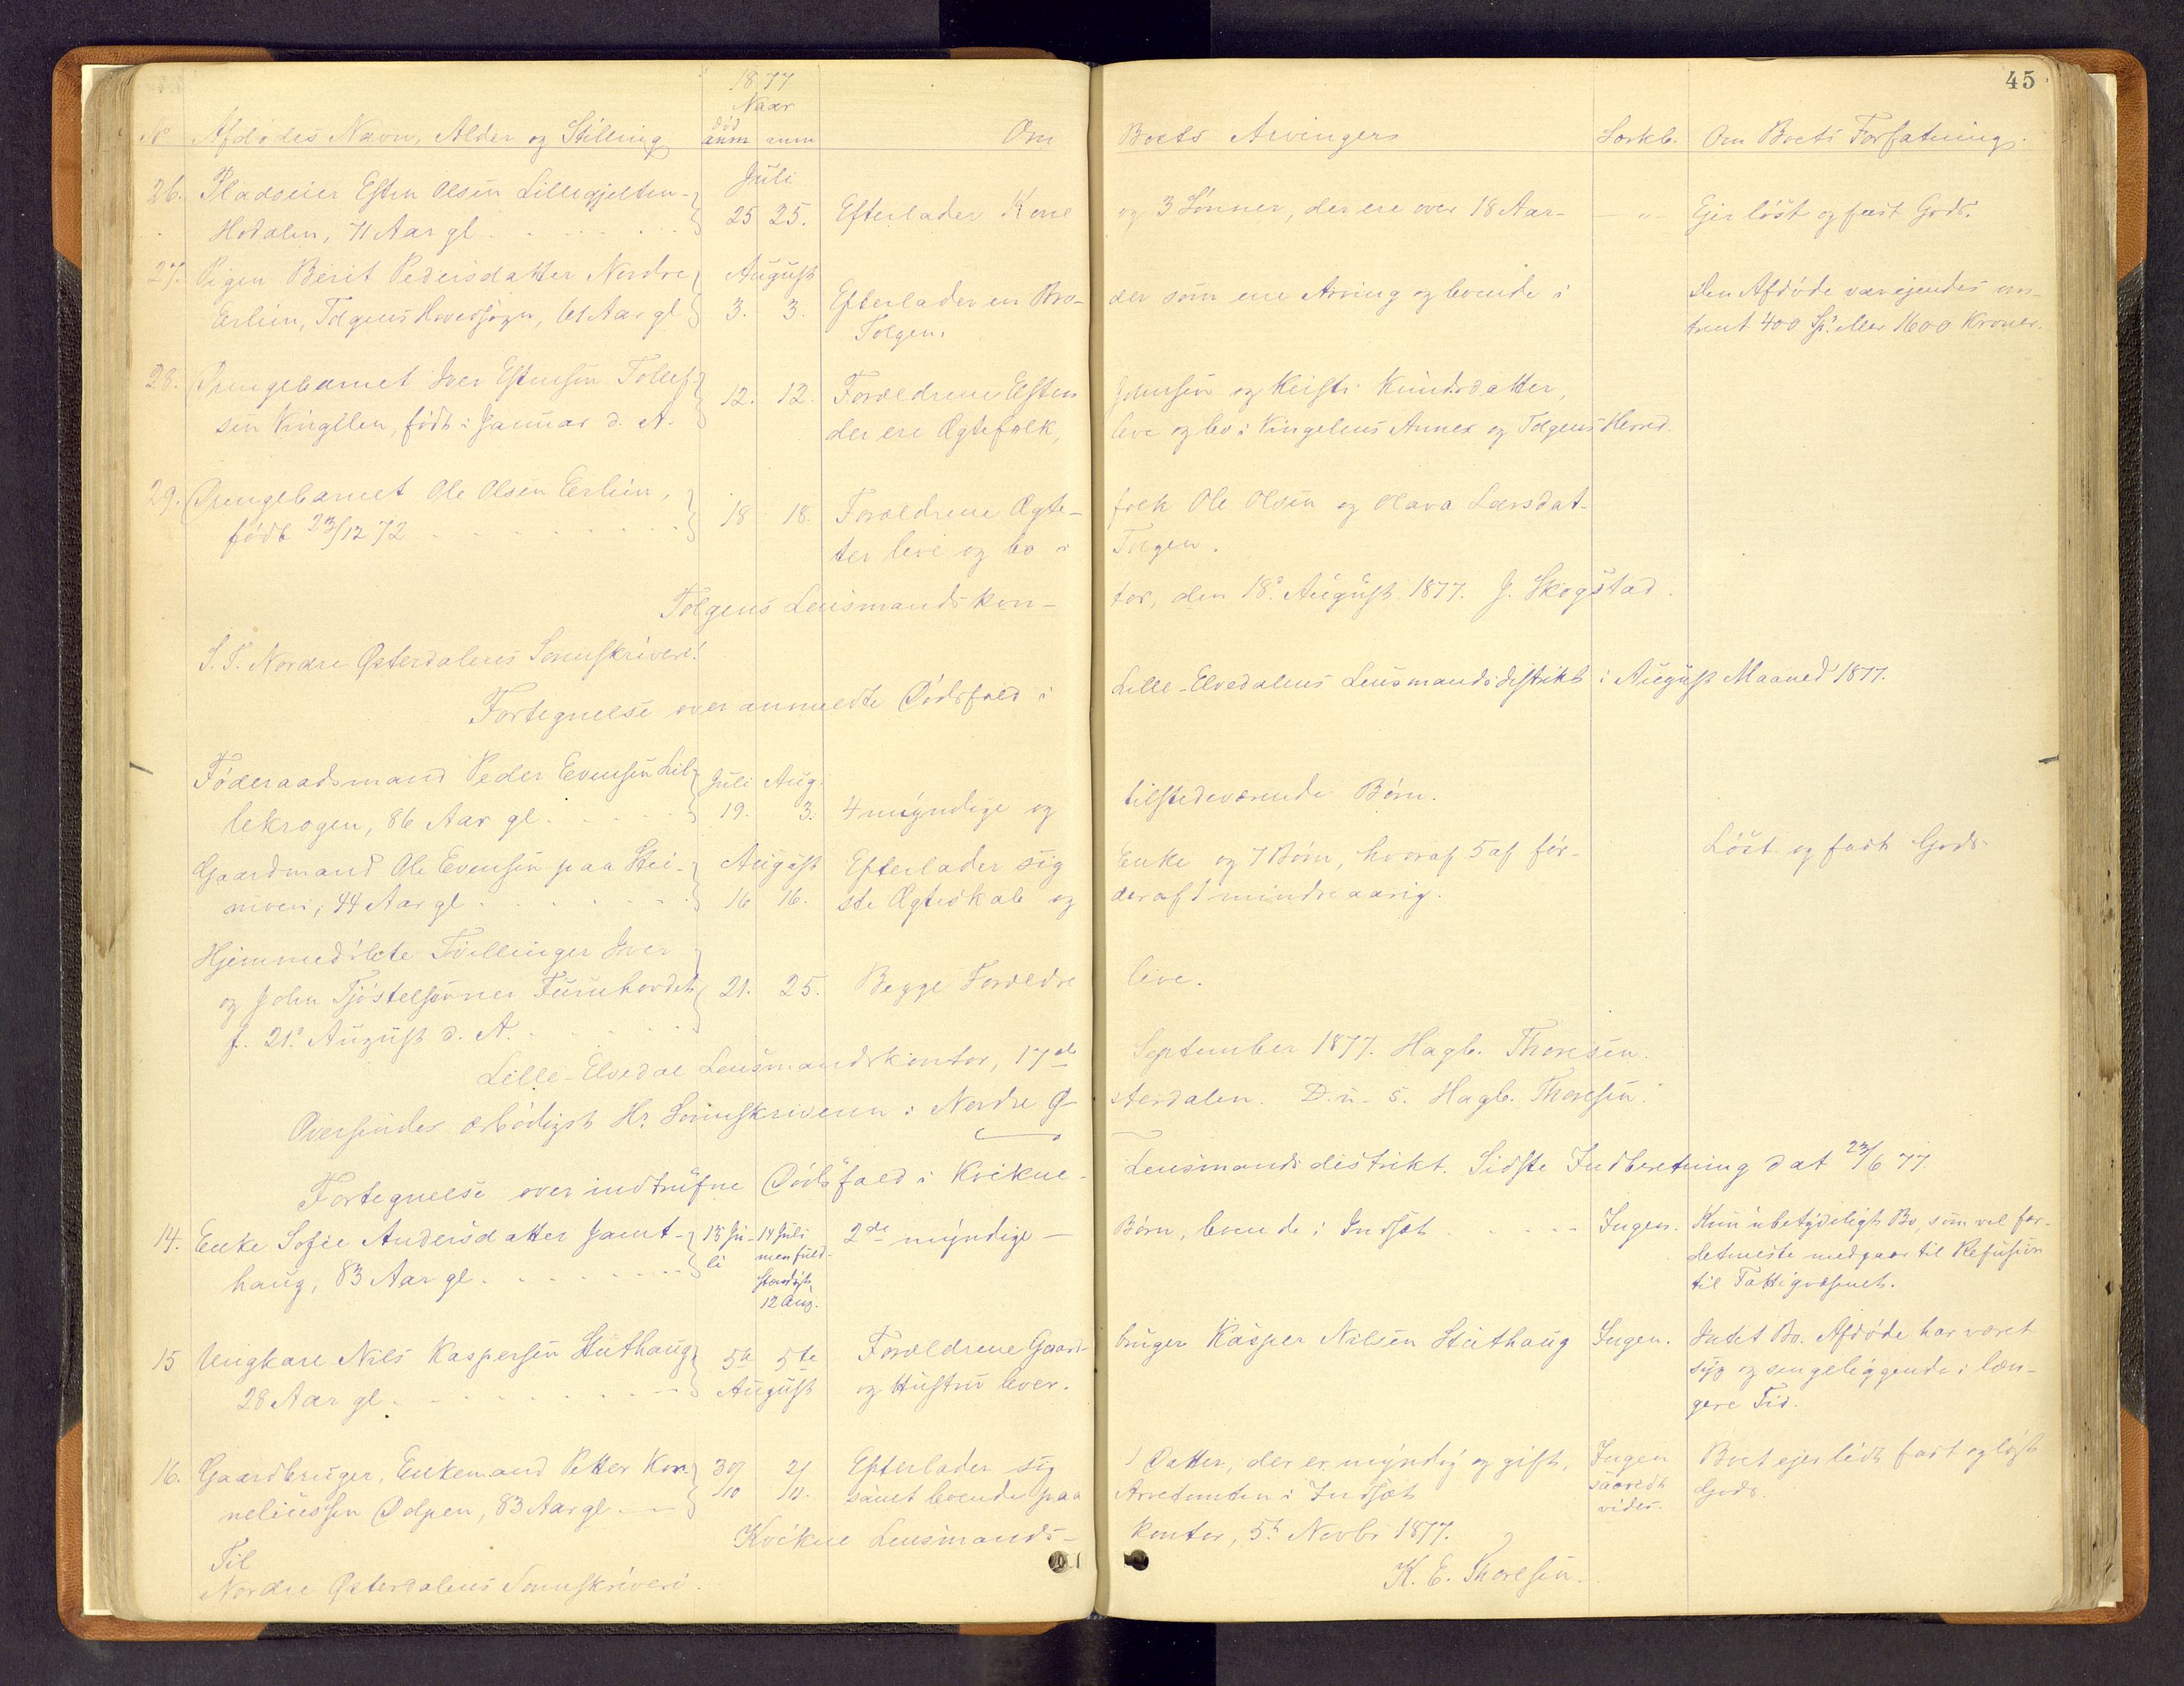 45
1877
Naar
No Afdødes Navn, Alder og Stilling død anm Om Boets Arvinger Om Boets Forfatning.
Juli
26. Pladseier Esten Olsen Lillegjelten-
Hodalen, 71 Aar gl. 25 25. Efterlader Kone og 3 Sønner, der ere over 18 Aar - " - Ejer løst og fast Gods.
27. Pigen Berit Pedersdatter Nordre August Den Afdøde var ejendes om-
Erlien, Tolgens Hovedsogn, 61 Aar gl 3. 3. Efterlader en Bro- der som ene Arving og boende i trent 400 Sp. eller 1600 Kroner.
Tolgen.
28. Drengebarnet Iver Estensen Tollef- 12. 12. Forældrene Esten Johnsen og Kirsti Knudsdatter,
sen Vingelen, født i Januar d. A. der ere Ægtefolk, leve og bo i Vingelens Annex og Tolgens Herred.
29. Drengebarnet Ole Olsen Erlien, 18 18. Forældrene Ægte- folk Ole Olsen og Olava Larsdat-
født 23/12 72 ter leve og bo i Tolgen.
Tolgens Lensmandskon- tor, den 18. August 1877. J. Skogstad.
S. T. Nordre Østerdalens Sorenskriveri!
Fortegnelse over anmeldte Dødsfald i Lille-Elvedalens Lensmandsdistrikt i August Maaned 1877.
Føderaadsmand Peder Evensen Lil- Juli Aug.
lekrogen, 86 Aar gl. 19. 3. 4 myndige og tilstedeværende Børn.
Gaardmand Ole Evensen paa Stei- August Efterlader sig Enke og 7 Børn, hvoraf 5 af før- Løst og fast Gods
moen, 44 Aar gl. 16 16. ste Ægteskab og deraf 1 mindreaarig.
Hjemmedøbte Tvillinger Iver
og John Tjøstelsønner Furuhovdet 21. 25. Begge Forældre leve.
f. 21. August d. A.
Lille-Elvedal Lensmandskontor, 17de September 1877. Hagb. Thoresen.
Oversendes ærbødigst Hr. Sorenskriveren i Nordre Ø- sterdalen. D. u. s. Hagb. Thoresen.
Fortegnelse over indtrufne Dødsfald i Kvikne- Lensmandsdistrikt. Sidste Indberetning dat 23/6 77
14. Enke Sofie Andersdatter Jamt- 13 Ju- 14 Juli 2de myndige - Børn, boende i Indset Ingen. Kun ubetydeligt Bo, som vel for-
haug, 83 Aar gl. li men fuld- detmeste medgaar til Refusion
stændigt til Fattigvæsenet.
12 Aug.
15 Ungkarl Nils Kaspersen Stuthaug 5te 5te Forældrene Gaard- bruger Kasper Nilsen Stuthaug Ingen. Intet Bo. Afdøde har været
28 Aar gl. August og Hustru lever. syg og sengeliggende i læn-
gere Tid.
16. Gaardbruger, Enkemand Petter Kor- Efterlader sig 1 Datter, der er myndig og gift, Ingen Boet ejer lidt fast og løst
neliussen Dolpen, 83 Aar gl. samt boende paa i Indset saavidt Gods.
vides.
Kvikne Lensmands- kontor, 5te Novbr 1877.
Til K. E. Thoresen
Nordre Østerdalens Sorenskriveri.